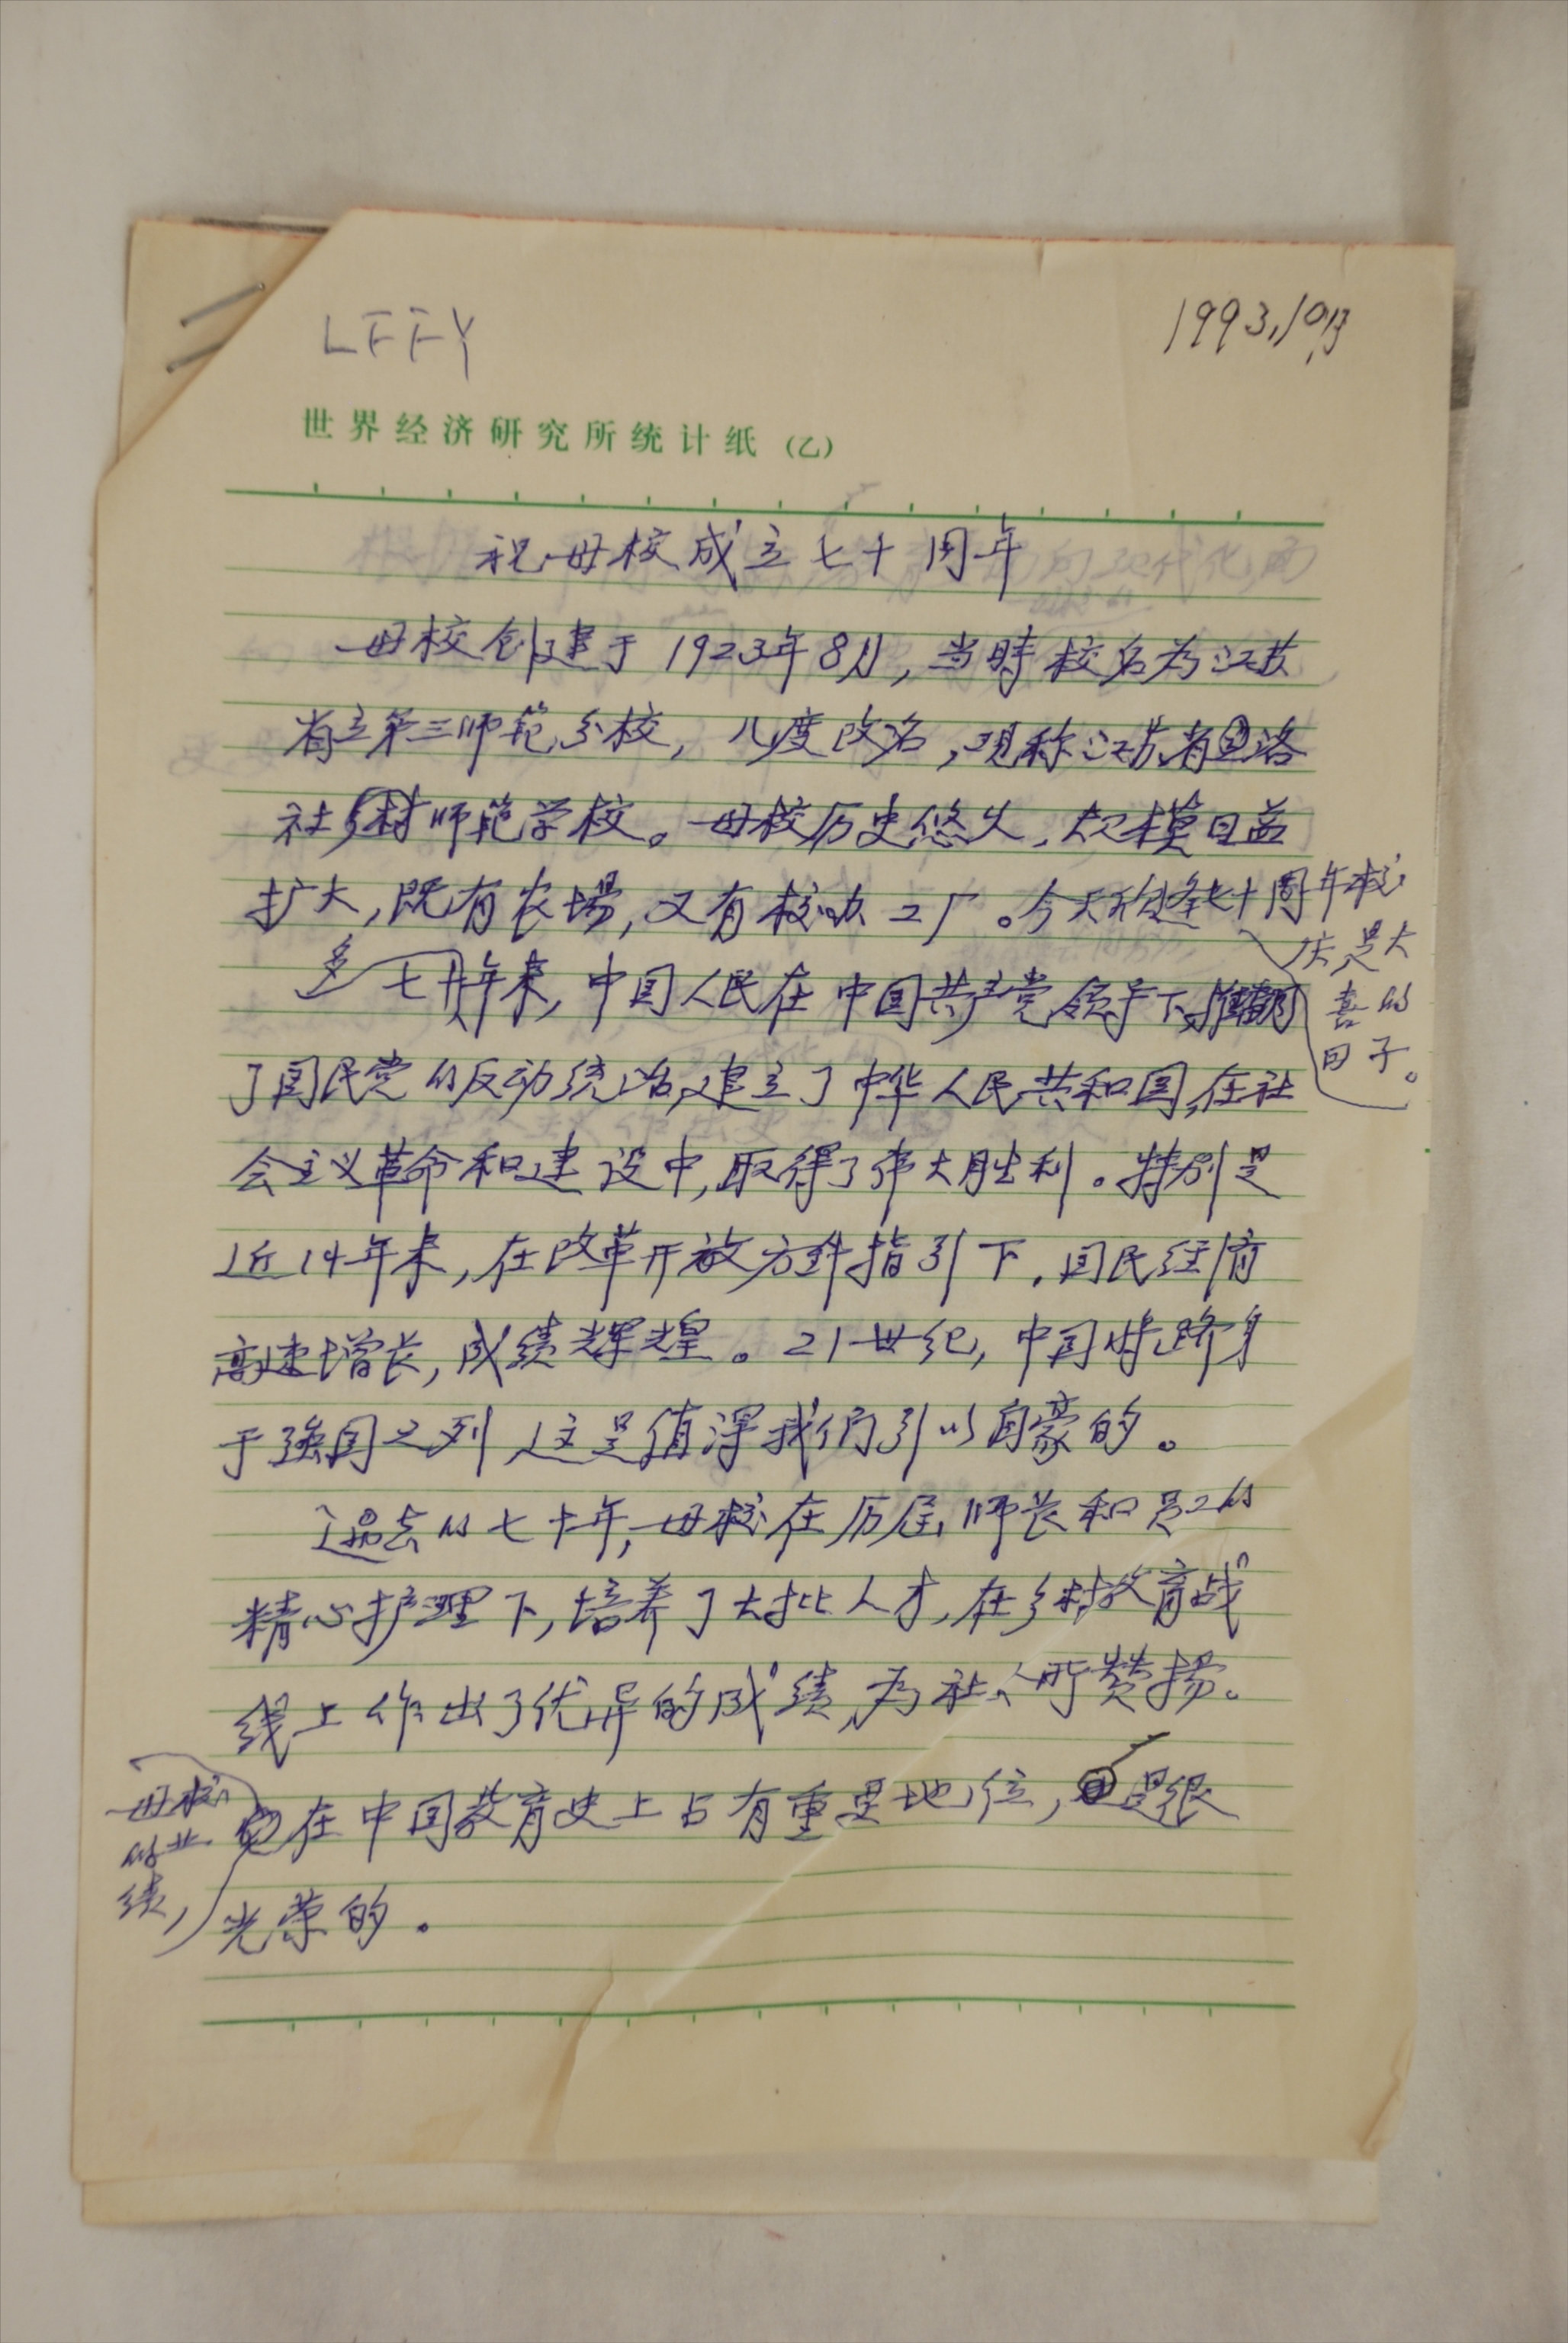 LFFY
1993,10月
世界经济研究所统计纸(乙)
祝母校成立七十周年
母校创建于1923年8月,当時校名为江苏
省立第三师範分校,几度改名,现称江苏省洛
社乡村师範学校。母校历史悠久,规模日益
扩大,既有农場,又有校办工厂。今天欣逢七十周年校
庆是大
喜的
日子。
七十多年来,中国人民在中国共产党领导下,推翻
了国民党的反动统治,建立了中华人民共和国,在社
会主义革命和建设中,取得了伟大胜利。特别是
近14年来,在改革开放方针指引下,国民经济
高速增长,成绩辉煌。21世纪,中国将跻身
于强国之列,这是值得我们引以自豪的。
过去的七十年,母校在历届师长和员工的
精心护理下,培养了大批人才,在乡村教育战
线上作出了优异的成绩,为社人所赞揚。
母校
的业
绩,
在中国教育史上占有重要地位,是很
光荣的。